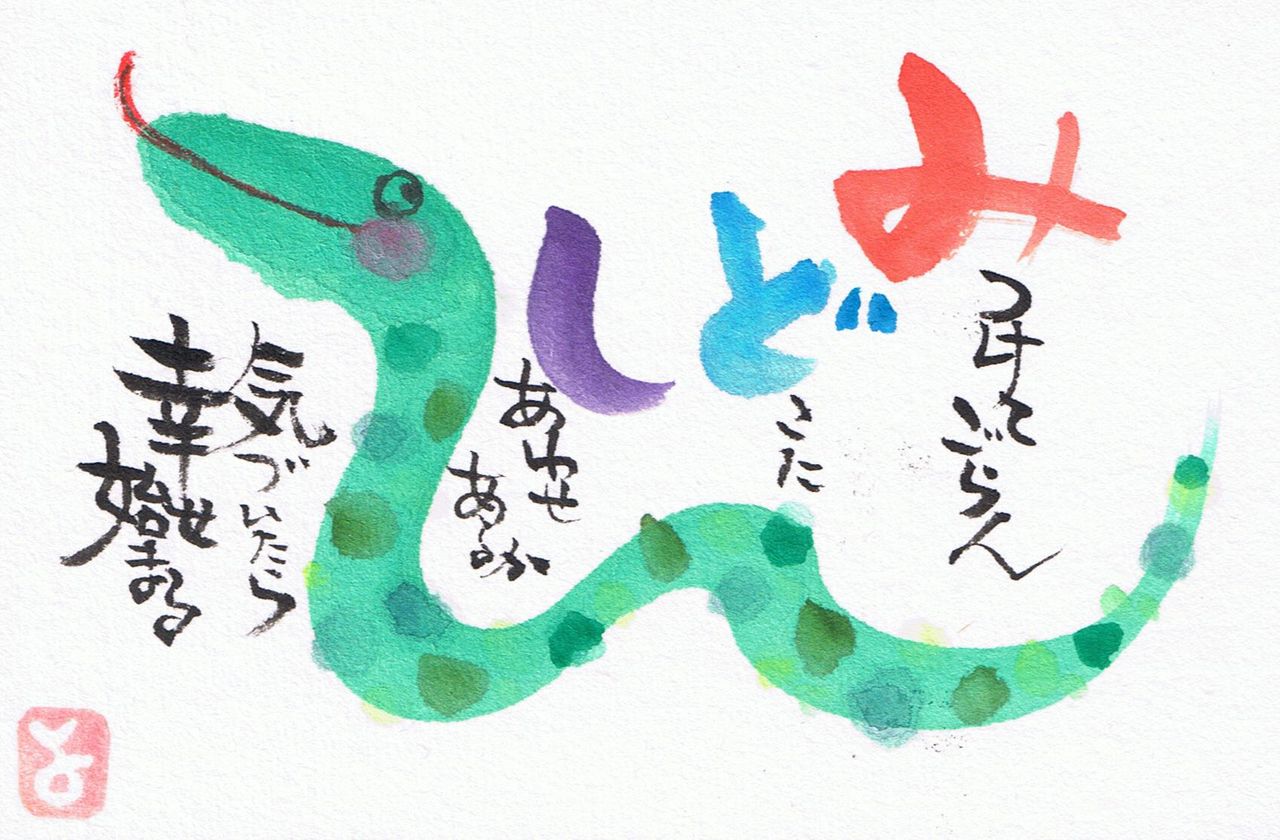 みつけてごらん
どこに
しあわせ
あるか
気づいたら
幸せ
始まる